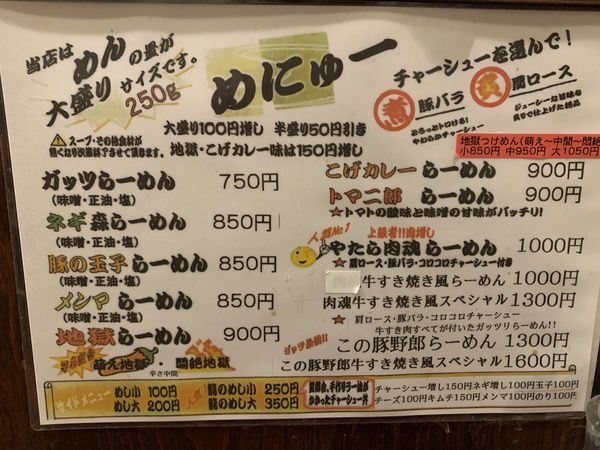 当店は めんの量が
大盛りサイズです。
250g
めにゅー
チャーシューを選んで!
豚バラ
とろっとトロける!
やわらかチャーシュー
肩ロース
ジューシーな旨味を
炙りで仕上げた絶品
大盛り100円増し 半盛り50円引き
スープ・その他食材が
無くなり次第終了させて頂きます。
地獄・こげカレー味は150円増し
地獄つけめん(萌え~中間~悶絶
小850円 中950円 大1050円
ガッツらーめん 750円
(味噌・正油・塩)
ネギ森らーめん 850円
(味噌・正油・塩)
豚の玉子らーめん 850円
(味噌・正油・塩)
メンマらーめん 850円
(味噌・正油・塩)
地獄らーめん 900円
萌え地獄
辛さ中間
悶絶地獄
こげカレーらーめん 900円
トマ二郎らーめん 900円
★トマトの酸味と味噌の甘味がバッチリ!
人気No.1
上級者!!肉増し
やたら肉魂らーめん 1000円
★肩ロース・豚バラ・コロコロチャーシュー付き
牛すき焼き風らーめん 1000円
肉魂牛すき焼き風スペシャル 1300円
★肩ロース・豚バラ・コロコロチャーシュー
牛すき肉すべてが付いたガッツリらーめん!!
この豚野郎らーめん 1300円
この豚野郎牛すき焼き風スペシャル 1600円
サイドメニュー
めし小 100円
めし大 200円
人気
龍のめし小 250円
龍のめし大 350円
かかったチャーシュー丼
チャーシュー増し150円ネギ増し100円玉子100円
チーズ100円キムチ150円メンマ100円のり100円